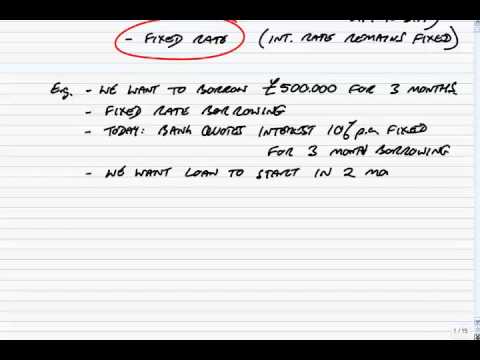 - FIXED RATE (INT. RATE REMAINS FIXED)
Eg. - WE WANT TO BORROW £500.000 FOR 3 MONTHS
- FIXED RATE BORROWING
- TODAY: BANK QUOTES INTEREST 10% p.a FIXED
FOR 3 MONTH BORROWING
- WE WANT LOAN TO START IN 2 MO
1 / 15